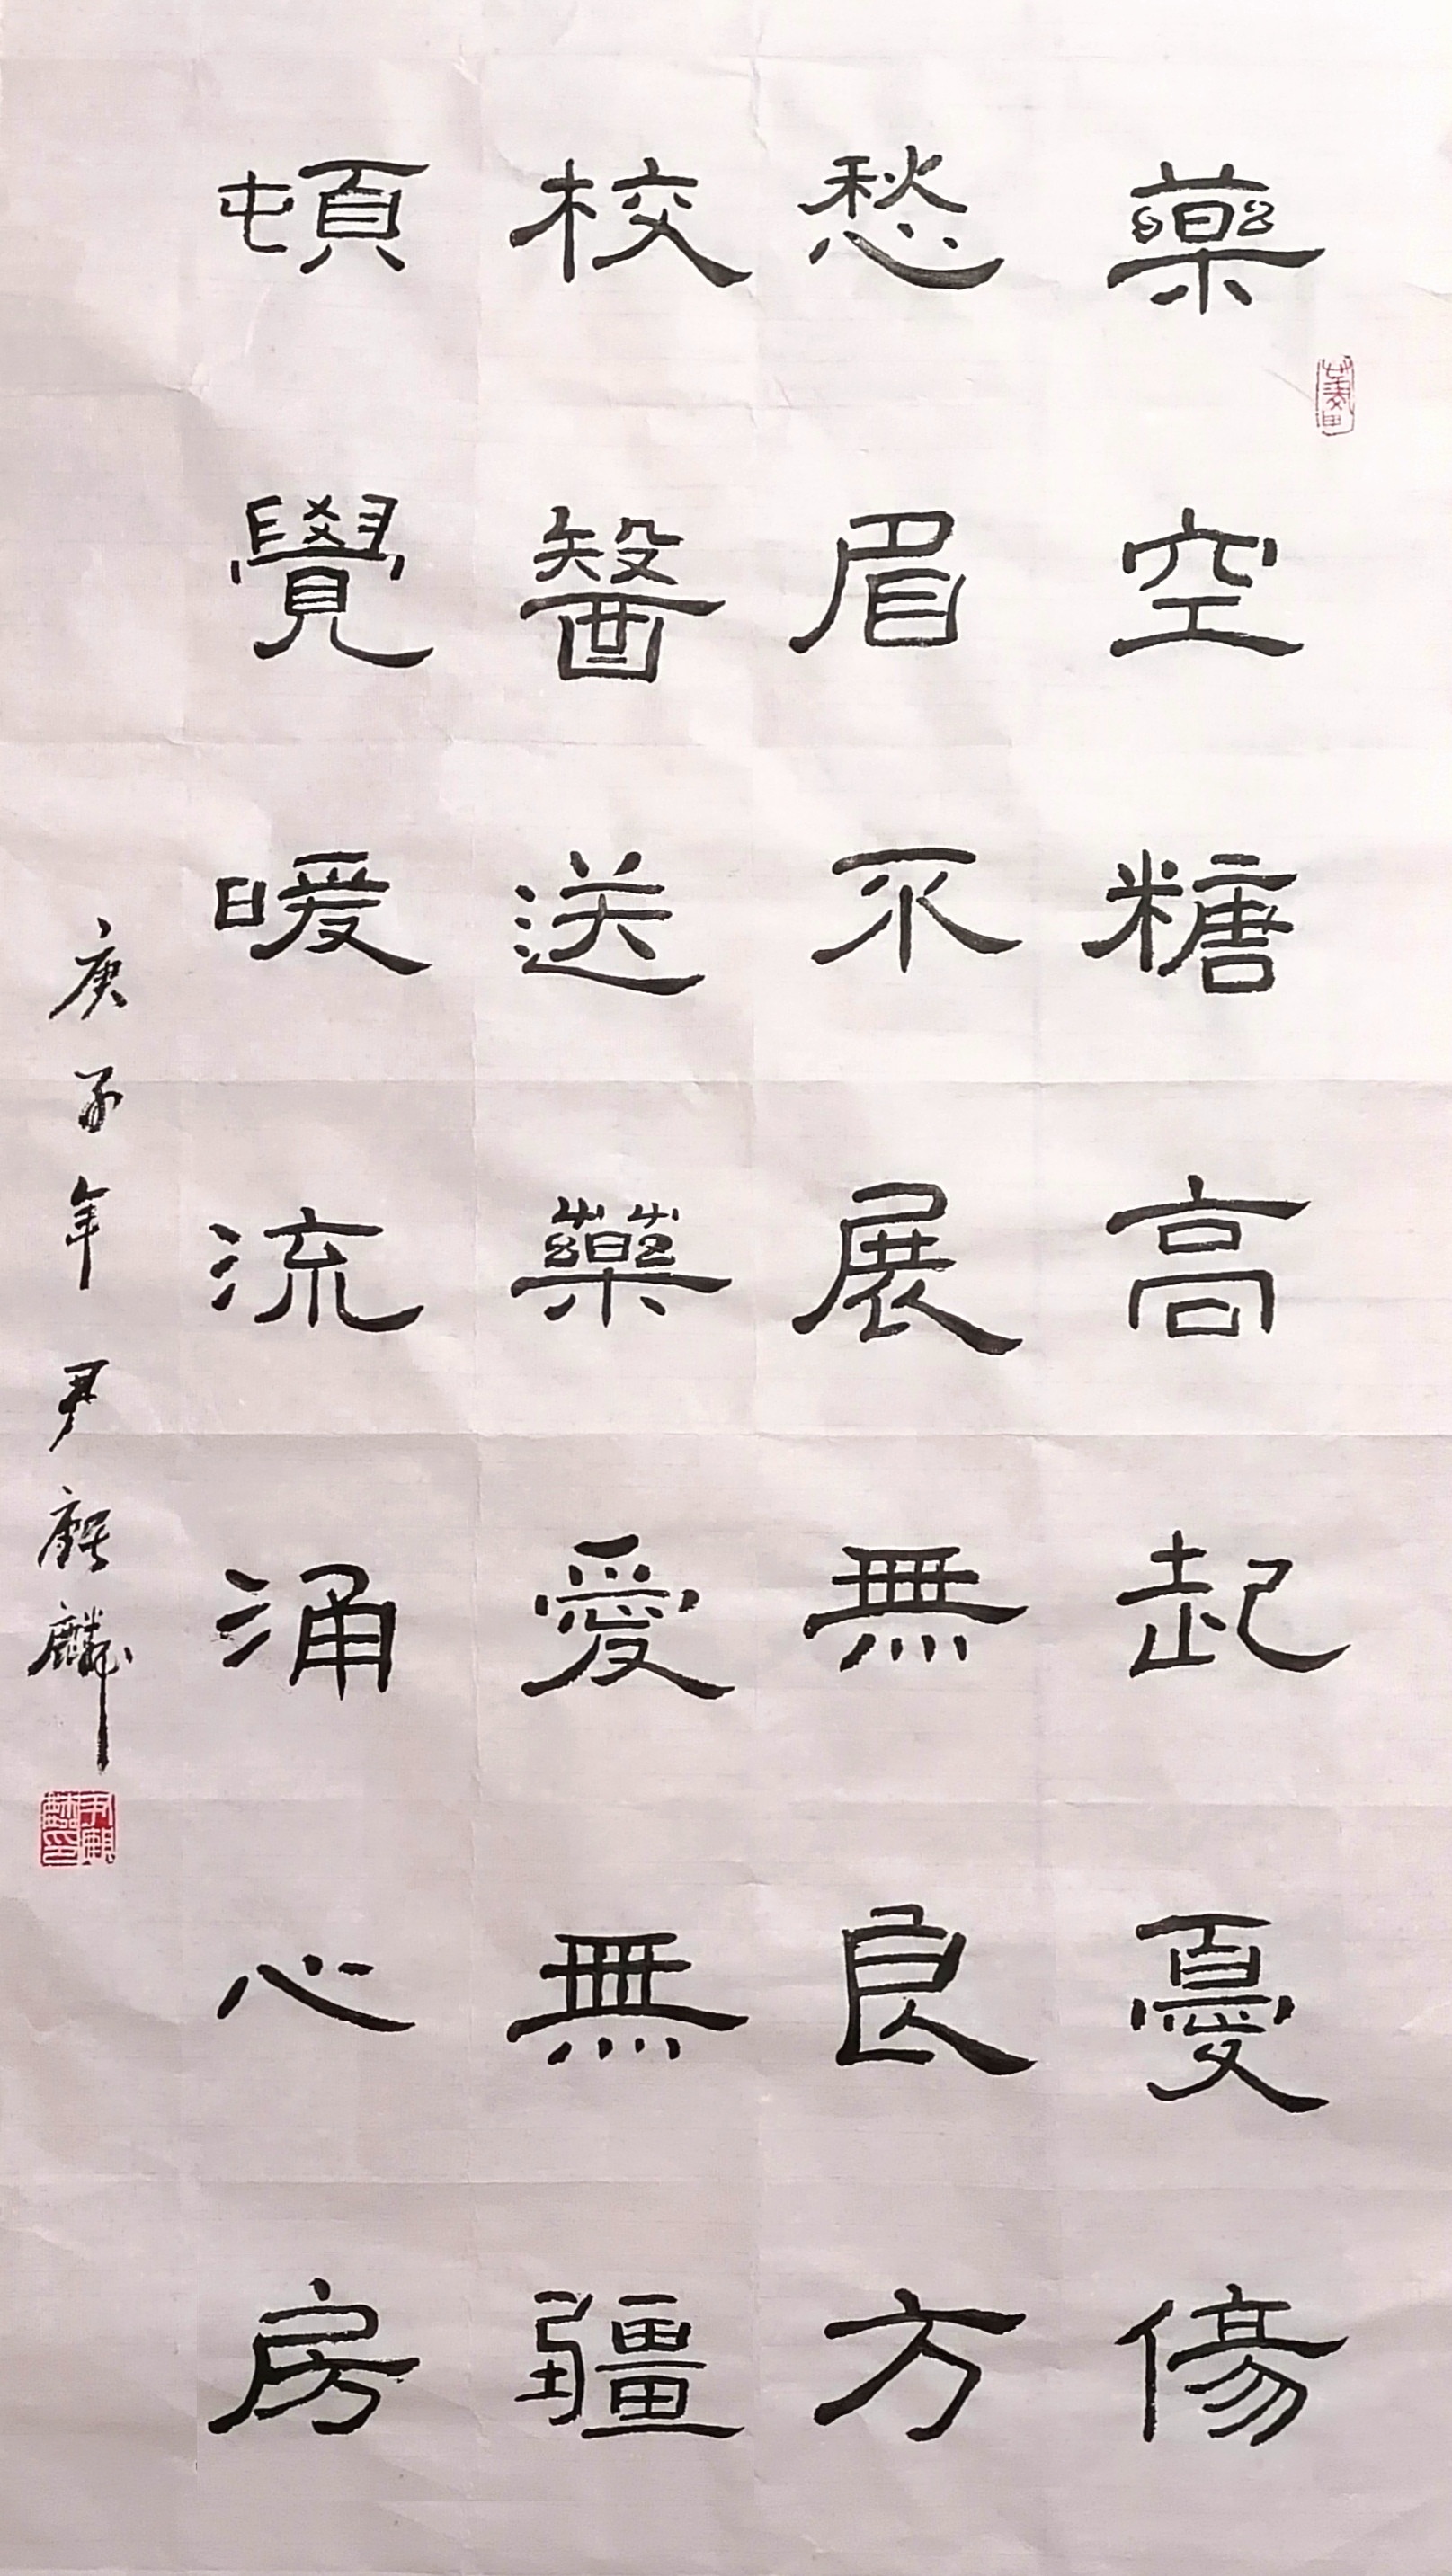 藥空糖高起憂傷
愁眉不展無良方
校醫送藥愛無疆
頓覺暖流涌心房
庚子年尹麒麟